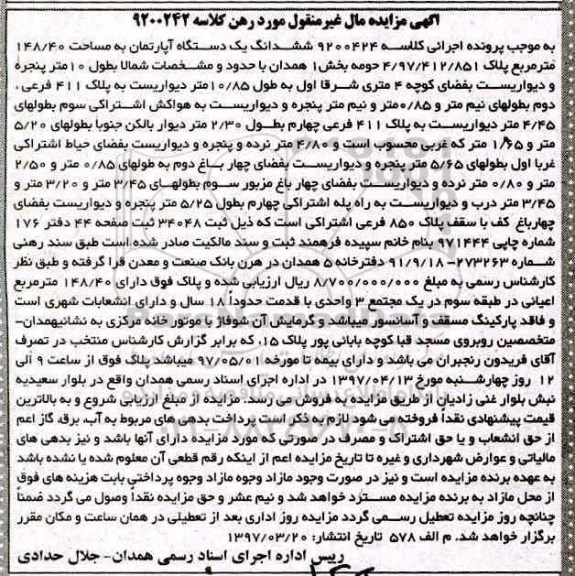 آگهی مزایده مال غیرمنقول مورد رهن کلاسه ۹۲۰۰۲۴۲
به موجب پرونده اجرائی کلاسه ۹۲۰۰۴۲۴ ششدانگ یک دستگاه آپارتمان به مساحت ۱۴۸/۴۰
مترمربع پلاک ۴/۹۷/۴۱۲/۸۵۱ حومه بخش۱ همدان با حدود و مشخصات شمالا بطول ۱۰متر پنجره
و دیواریست بفضای کوچه ۴ متری شرقا اول به طول ۱۰/۸۵متر دیواریست به پلاک ۴۱۱ فرعی ،
دوم بطولهای نیم متر و ۰/۸۵متر و نیم متر پنجره و دیواریست به هواکش اشتراکی سوم بطولهای
۴/۴۵ متر دیواریست به پلاک ۴۱۱ فرعی چهارم بطول ۲/۳۰ متر دیوار بالکن جنوبا بطولهای ۵/۲۰
متر و ۱/۶۵ متر که غربی محسوب است و ۴/۸۰ متر نرده و پنجره و دیواریست بفضای حیاط اشتراکی
غربا اول بطولهای ۵/۶۵ متر پنجره و دیواریست بفضای چهار باغ دوم به طولهای ۰/۸۵ متر و ۲/۵۰
متر و ۰/۸۰ متر نرده و دیواریست بفضای چهار باغ مزبور سوم بطولهای ۳/۴۵ متر و ۳/۲۰ متر و
۳/۴۵ متر درب و دیواریست به راه پله اشتراکی چهارم بطول ۵/۲۵ متر پنجره و دیواریست بفضای
چهارباغ کف با سقف پلاک ۸۵۰ فرعی اشتراکی است که ذیل ثبت ۳۴۰۴۸ ثبت صفحه ۴۴ دفتر ۱۷۶
شماره چاپی ۹۷۱۴۴۴ بنام خانم سپیده فرهمند ثبت و سند مالکیت صادر شده است طبق سند رهنی
شماره ۲۷۳۲۶۳-۹۱/۹/۱۸ دفترخانه ۵ همدان در هرن بانک صنعت و معدن قرا گرفته و طبق نظر
کارشناس رسمی به مبلغ ۸/۷۰۰/۰۰۰/۰۰۰ ریال ارزیابی شده و پلاک فوق دارای ۱۴۸/۴۰ مترمربع
اعیانی در طبقه سوم در یک مجتمع ۳ واحدی با قدمت حدوداً ۱۸ سال و دارای انشعابات شهری است
و فاقد پارکینگ مسقف و آسانسور میباشد و گرمایش آن شوفاژ با موتور خانه مرکزی به نشانیهمدان-
متخصصین روبروی مسجد قبا کوچه بابائی پور پلاک ۱۵، که برابر گزارش کارشناس منتخب در تصرف
آقای فریدون رنجبران می باشد و دارای بیمه تا مورخه ۹۷/۰۵/۰۱ میباشد پلاک فوق از ساعت ۹ الی
۱۲ روز چهارشنبه مورخ ۱۳۹۷/۰۴/۱۳ در اداره اجرای اسناد رسمی همدان واقع در بلوار سعیدیه
نبش بلوار غنی زادیان از طریق مزایده به فروش می رسد. مزایده از مبلغ ارزیابی شروع و به بالاترین
قیمت پیشنهادی نقداً فروخته می شود لازم به ذکر است پرداخت بدهی های مربوط به آب، برق، گاز اعم
از حق انشعاب و یا حق اشتراک و مصرف در صورتی که مورد مزایده دارای آنها باشد و نیز بدهی های
مالیاتی و عوارض شهرداری و غیره تا تاریخ مزایده اعم از اینکه رقم قطعی آن معلوم شده یا نشده باشد
به عهده برنده مزایده است و نیز در صورت وجود مازاد وجوه مازاد وجوه پرداختی بابت هزینه های فوق
از محل مازاد به برنده مزایده مسترد خواهد شد و نیم عشر و حق مزایده نقداً وصول می گردد ضمناً
چنانچه روز مزایده تعطیل رسمی گردد مزایده روز اداری بعد از تعطیلی در همان ساعت و مکان مقرر
برگزار خواهد شد. م الف ۵۷۸ تاریخ انتشار: ۱۳۹۷/۰۳/۲۰
رییس اداره اجرای اسناد رسمی همدان- جلال حدادی